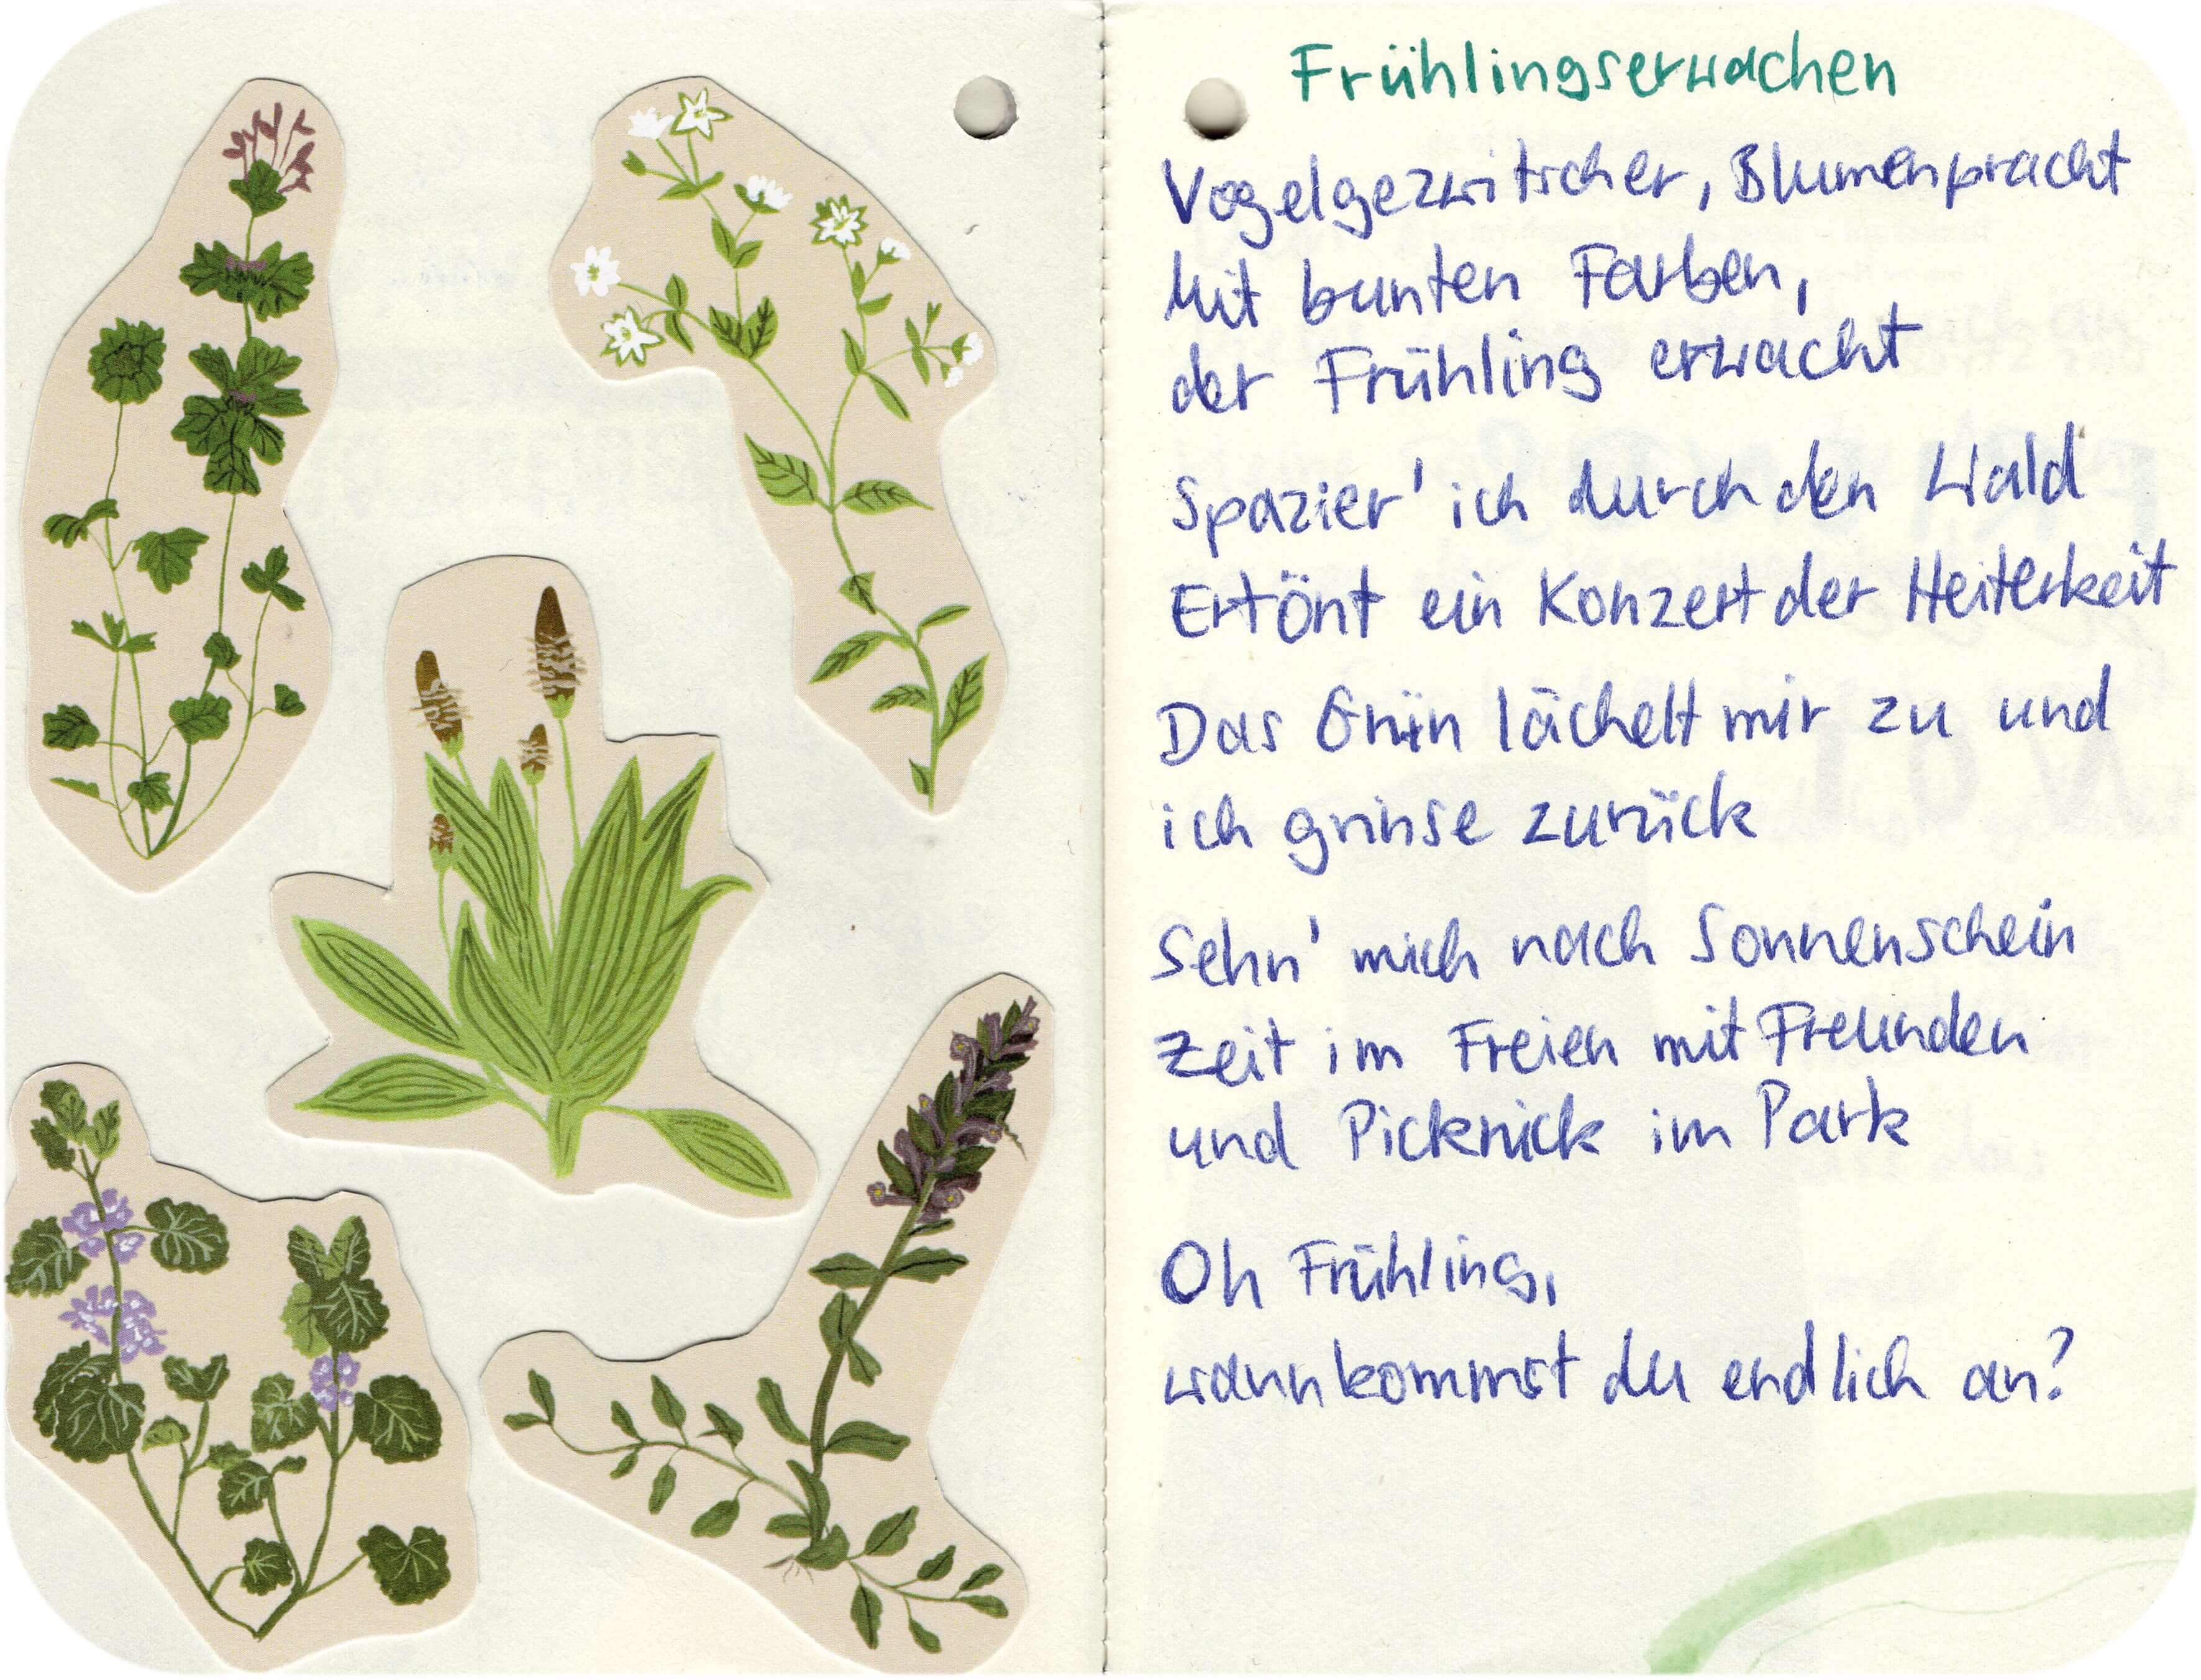 Frühlingserwachen
Vogelgezwitscher, Blumenpracht
Mit bunten Farben,
der Frühling erwacht
Spazier' ich durch den Wald
Ertönt ein Konzert der Heiterkeit
Das Grün lächelt mir zu und
ich grinse zurück
Sehn' mich nach Sonnenschein
Zeit im Freien mit Freunden
und Picknick im Park
Oh Frühling,
wann kommst du endlich an?